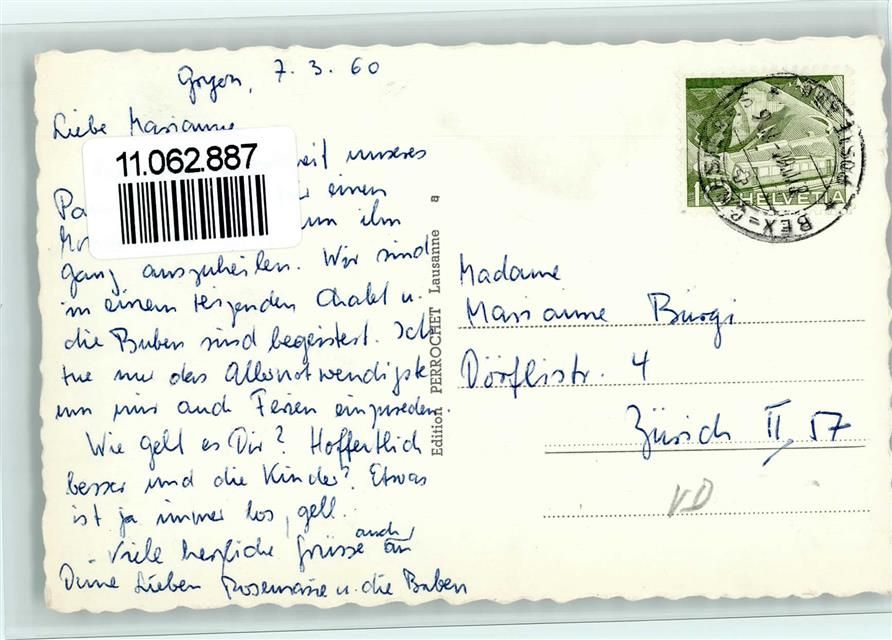 Gryon, 7. 3. 60
Liebe Marianne
11.062.887
unseres
einen
ihn
ganz auszuheilen. Wir sind
in einem reizenden Chalet u.
die Buben sind begeistert. Ich
tue nur das Allernotwendigste
um mir auch Ferien einzureden.
Wie geht es Dir? Hoffentlich
besser und die Kinder? Etwas
ist ja immer los, gell.
Viele herzliche Grüsse auch an
Deine Lieben Rosemarie u. die Buben
Edition PERROCHET Lausanne a
HELVETIA
BEX=
Madame
Marianne Bürgi
Dörflistr. 4
Zürich II, 57
VD